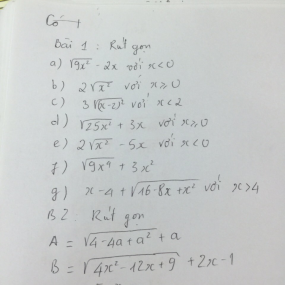 Bài 1 : Rút gọn
a) √9x² - 2x với x < 0
b) 2√x² với x ≥ 0
c) 3√(x-2)² với x < 2
d) √25x² + 3x với x ≥ 0
e) 2√x² - 5x với x < 0
f) √9x⁴ + 3x²
g) x - 4 + √16 - 8x + x² với x > 4
B2 : Rút gọn
A = √4 - 4a + a² + a
B = √4x² - 12x + 9 + 2x - 1